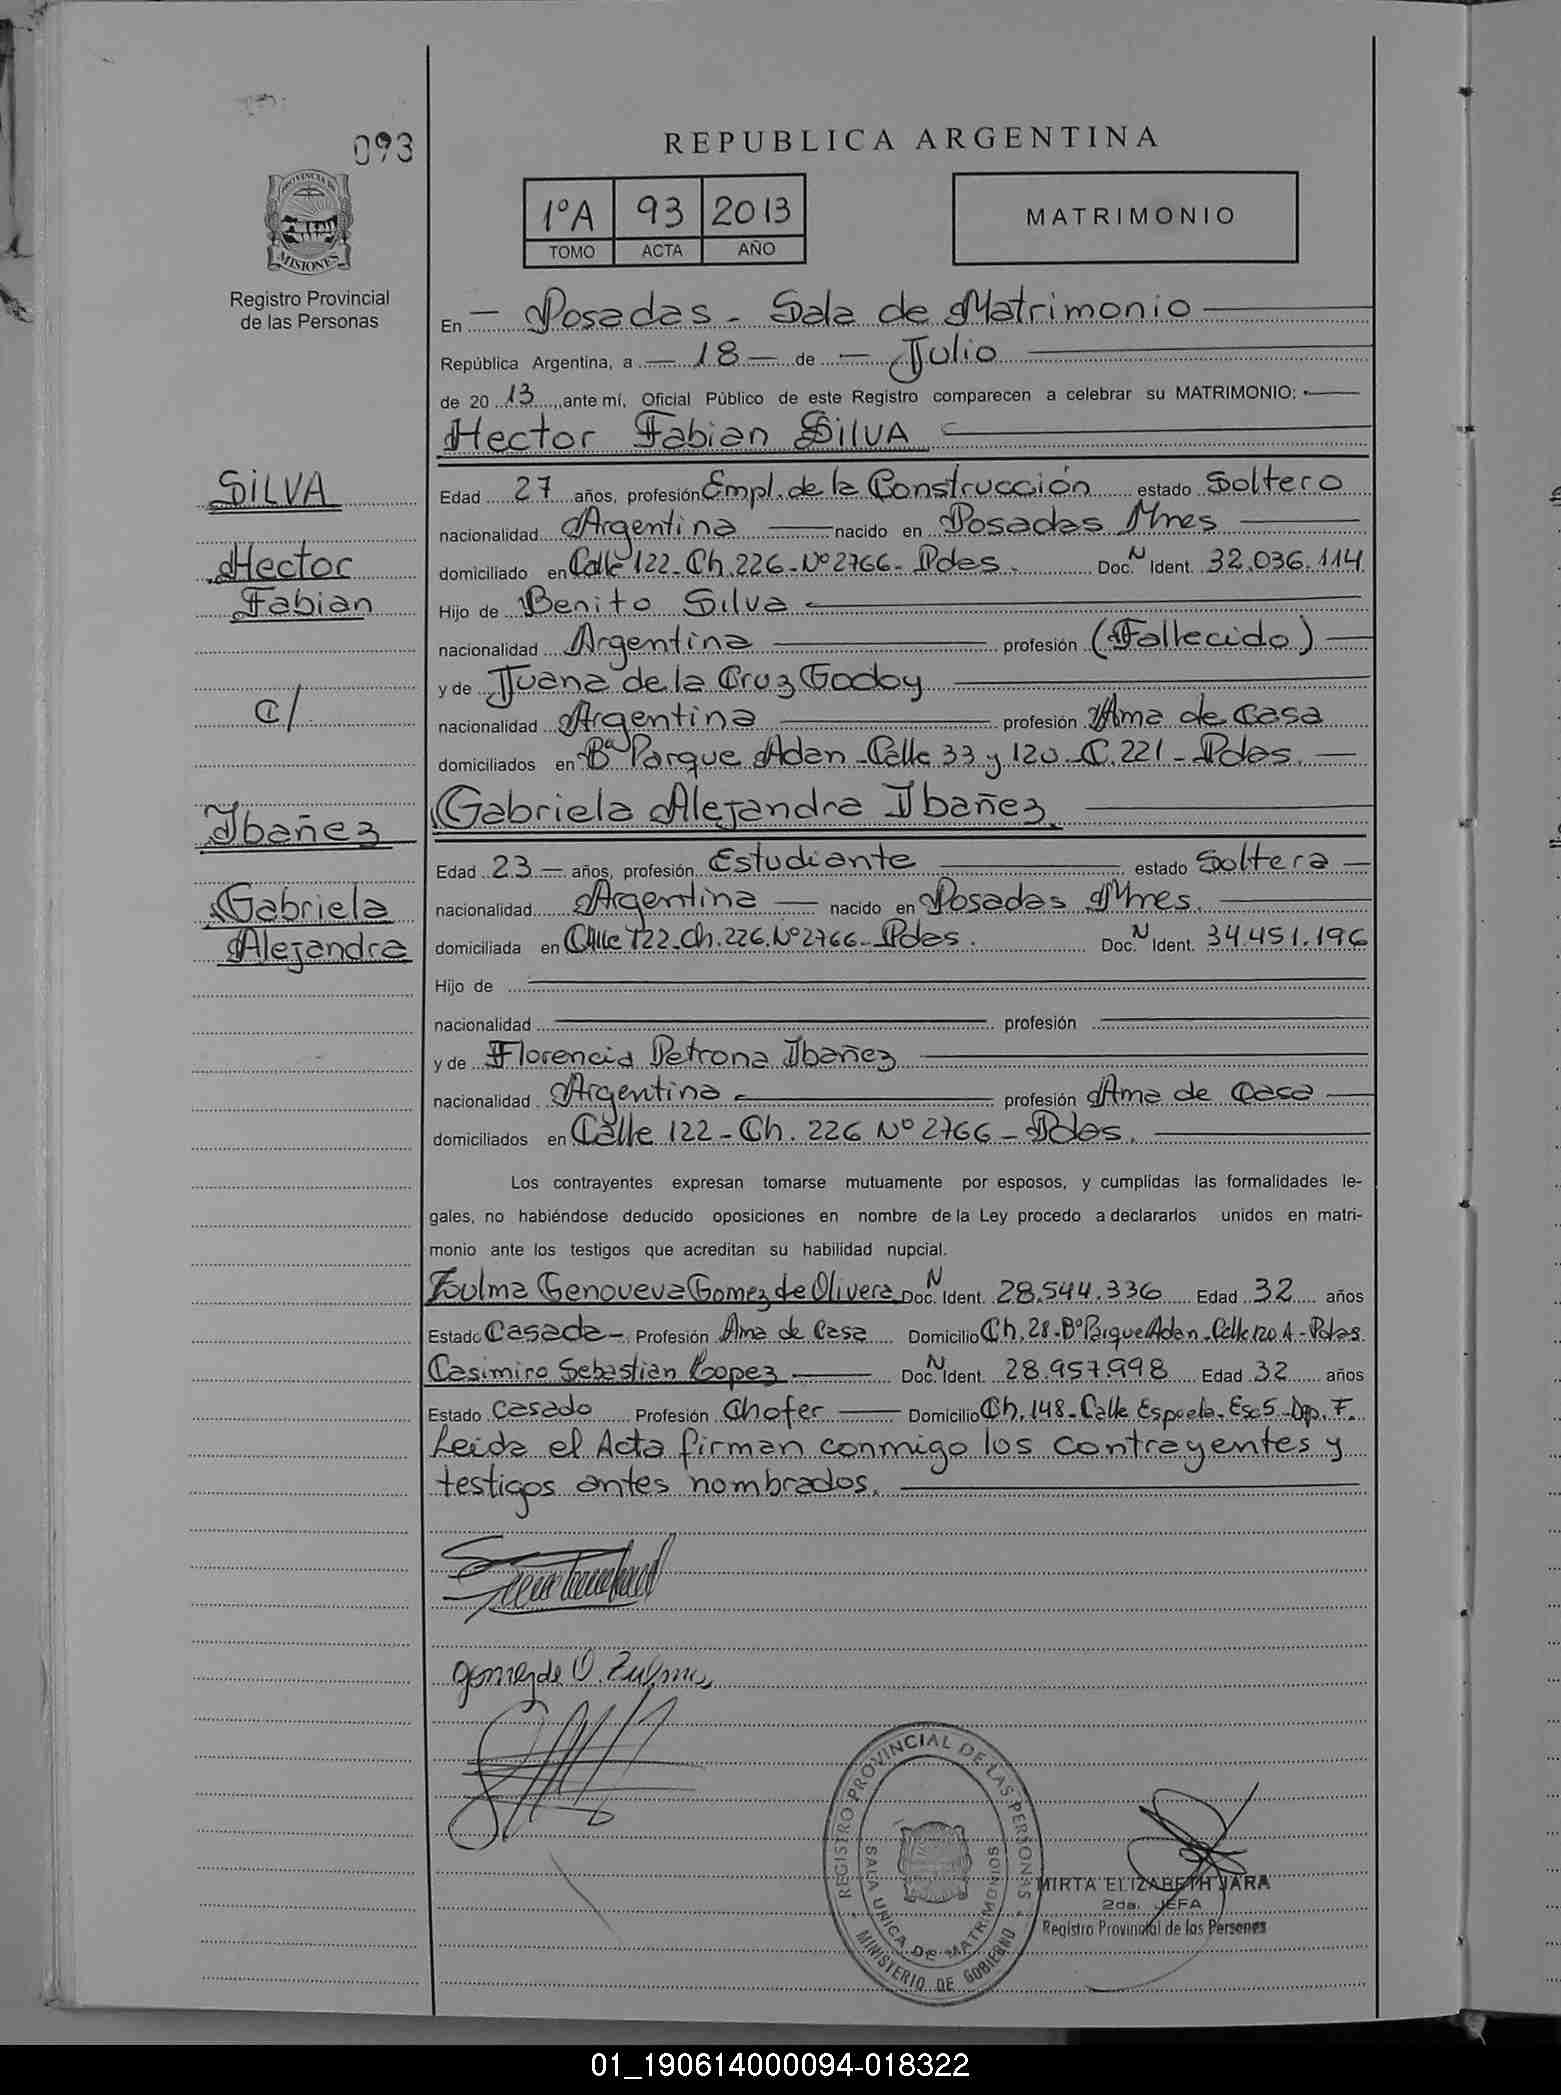 093
REPUBLICA ARGENTINA
1ºA 93 2013
TOMO ACTA AÑO
MATRIMONIO
PROVINCIA DE MISIONES
Registro Provincial
de las Personas
En Posadas - Sala de Matrimonio
República Argentina, a 18 de Julio
de 2013, ante mí, Oficial Público de este Registro comparecen a celebrar su MATRIMONIO:
Hector Fabian SILVA
SILVA
Hector
Fabian
C/
Ibañez
Gabriela
Alejandra
Edad 27 años, profesión Empl. de la Construcción estado Soltero
nacionalidad Argentina nacido en Posadas Mnes
domiciliado en Calle 122 - Ch. 226 - Nº 2766 - Pdas. Doc. N Ident. 32.036.114
Hijo de Benito Silva
nacionalidad Argentina profesión (Fallecido)
y de Juana de la Cruz Godoy
nacionalidad Argentina profesión Ama de Casa
domiciliados en Bº Parque Adan - Calle 33 y 120 - C. 221 - Pdas.
Gabriela Alejandra Ibañez
Edad 23 años, profesión Estudiante estado Soltera
nacionalidad Argentina nacido en Posadas Mnes.
domiciliada en Calle 122 - Ch. 226. Nº 2766 - Pdas. Doc. N Ident. 34.451.196
Hijo de
nacionalidad profesión
y de Florencia Petrona Ibañez
nacionalidad Argentina profesión Ama de Casa
domiciliados en Calle 122 - Ch. 226 Nº 2766 - Pdas.
Los contrayentes expresan tomarse mutuamente por esposos, y cumplidas las formalidades le-
gales, no habiéndose deducido oposiciones en nombre de la Ley procedo a declararlos unidos en matri-
monio ante los testigos que acreditan su habilidad nupcial.
Zulma Genoveva Gomez de Olivera Doc. N Ident. 28.544.336 Edad 32 años
Estado Casada - Profesión Ama de Casa Domicilio Ch. 28 - Bº Parque Adan - Calle 120 A - Pdas.
Casimiro Sebastian Lopez Doc. N Ident. 28.957.998 Edad 32 años
Estado Casado Profesión Chofer Domicilio Ch. 148 - Calle Espoela - Esc 5 - Dp. F.
Leida el Acta firman conmigo los contrayentes y
testigos antes nombrados.
Gomez de O. Zulma
REGISTRO PROVINCIAL DE LAS PERSONAS
SALA UNICA DE MATRIMONIOS
MINISTERIO DE GOBIERNO
MIRTA ELIZABETH JARA
2da. JEFA
Registro Provincial de las Personas
01_190614000094-018322